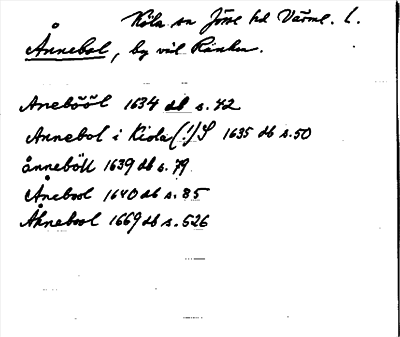 Köla sn Jösse hd Värml. l.
Ånnebol, by vid Ränken.
Anebööl 1634 db s. 42
Annebol i Kiola (!) S 1635 db s. 50
ånneböll 1639 db s. 79
Anebool 1640 db s. 85
Åhnebool 1669 db s. 526